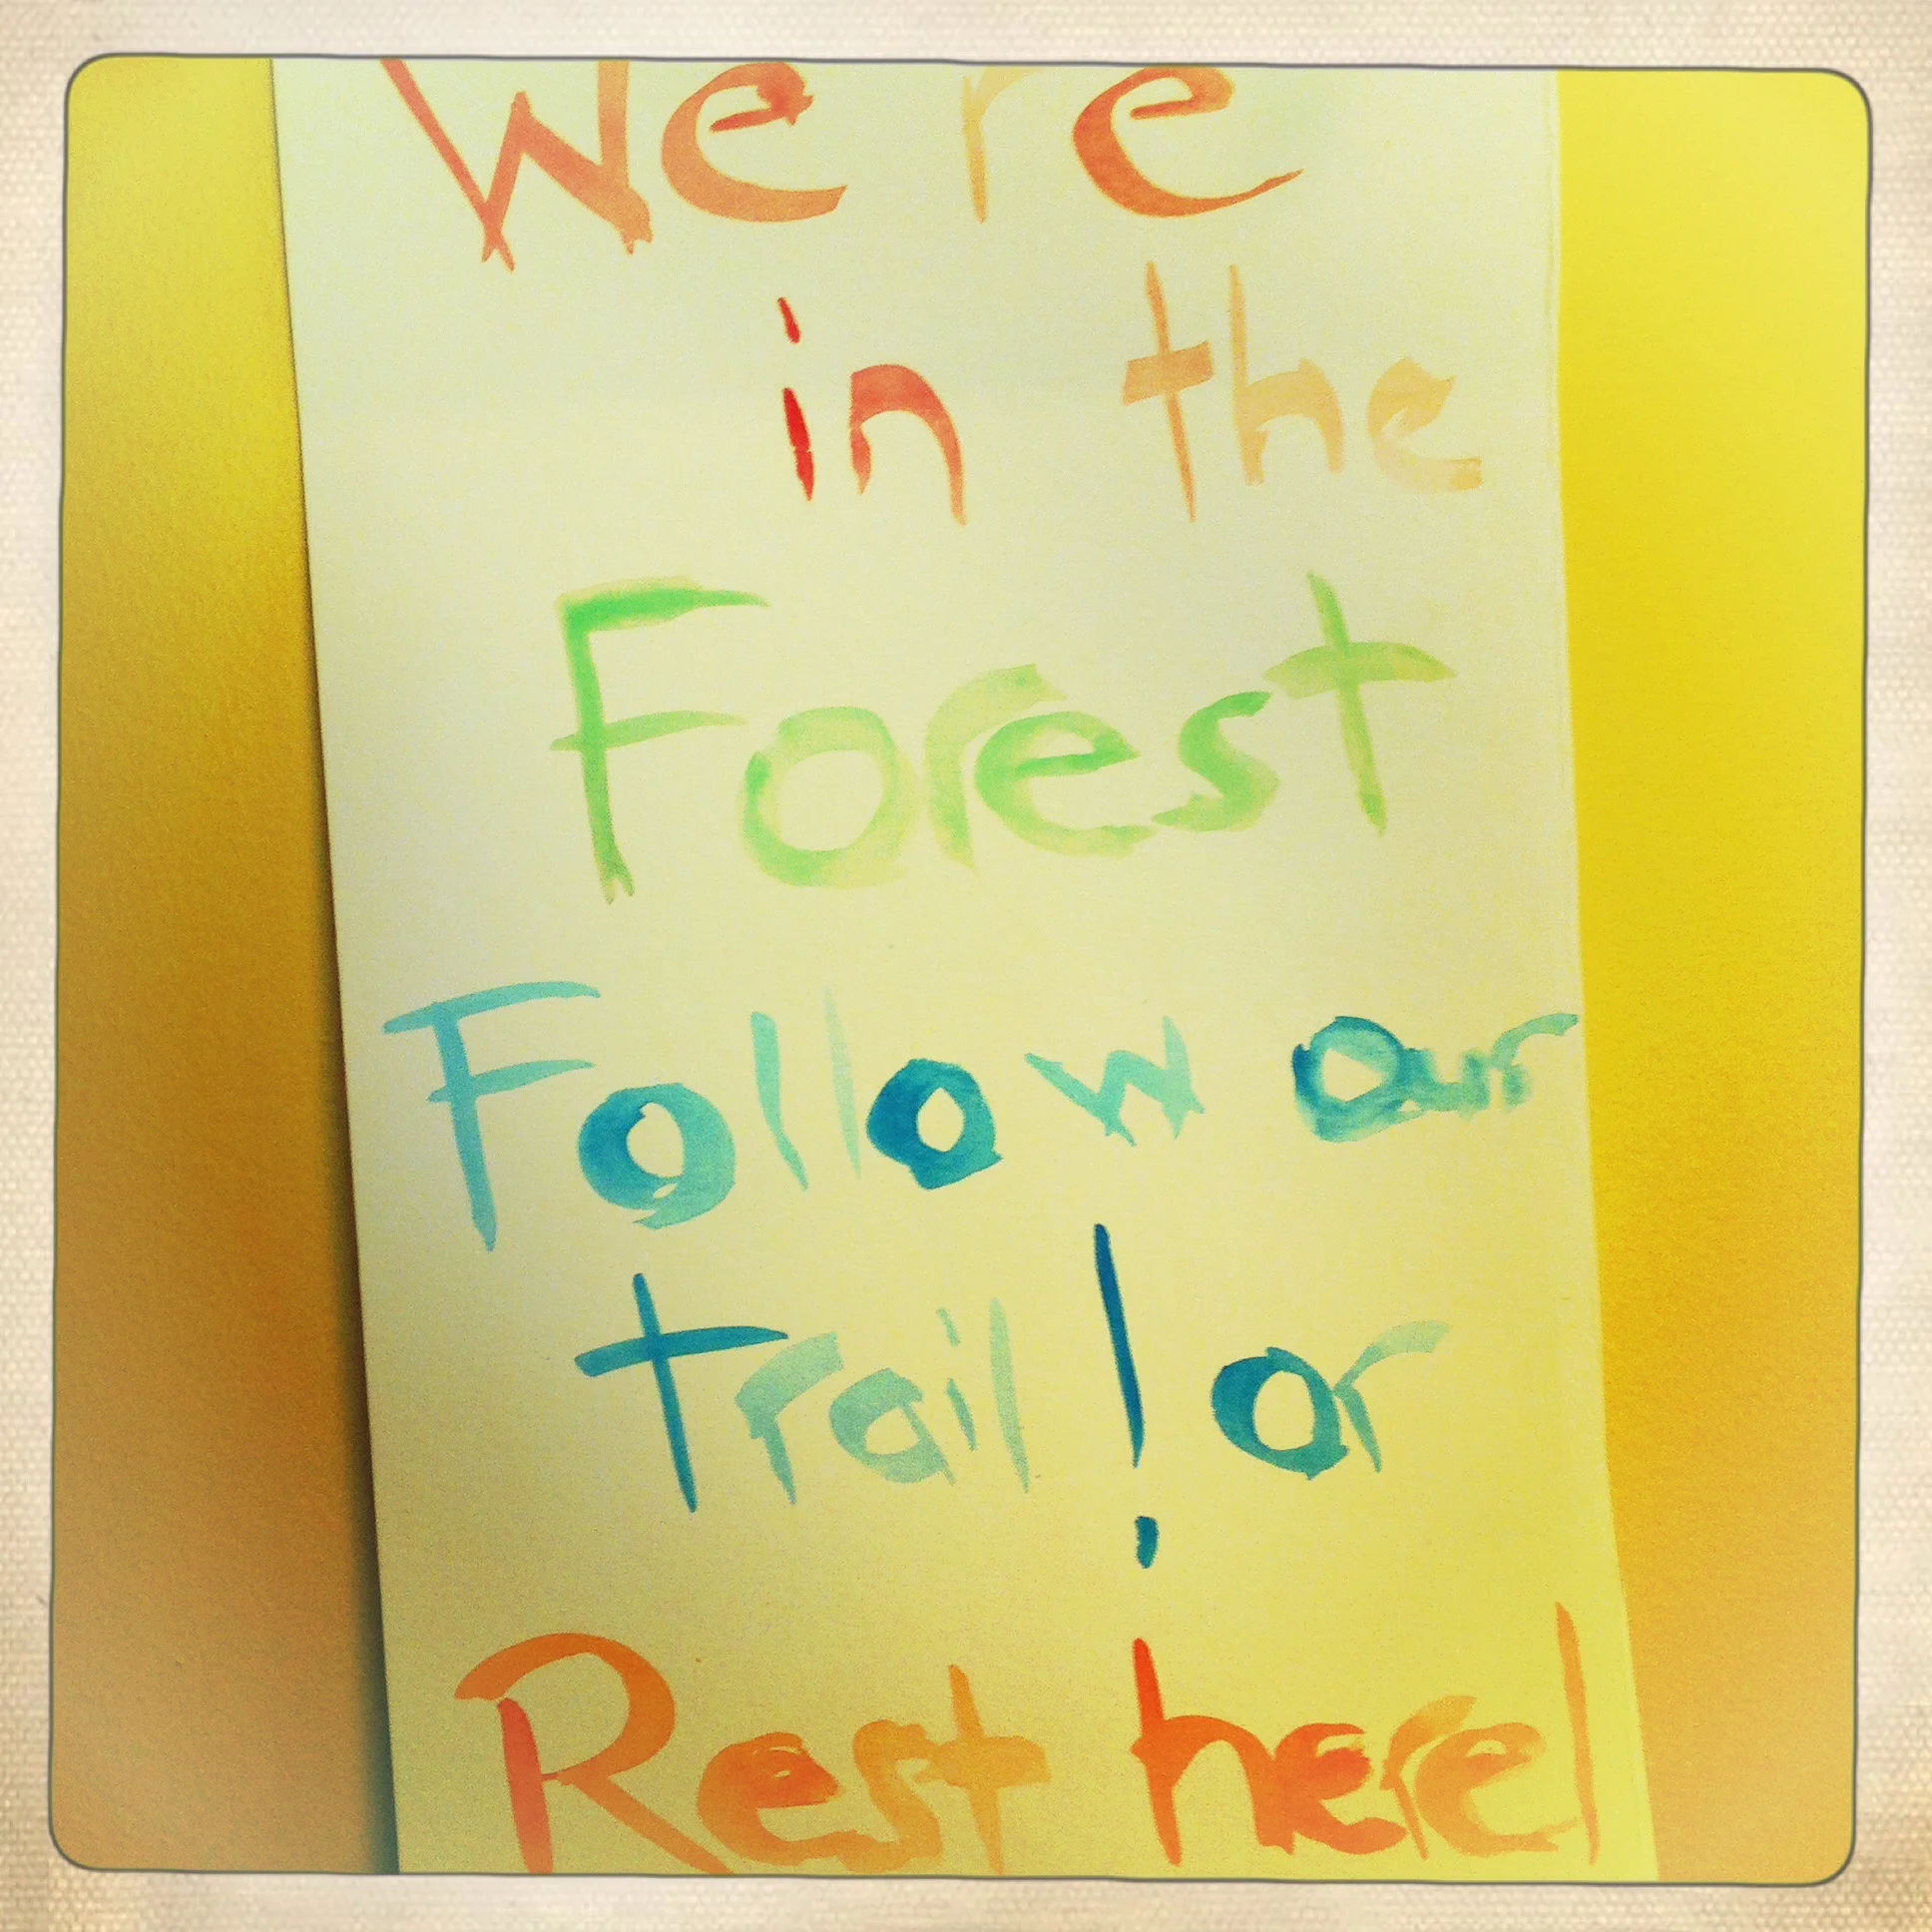 We're
in the
Forest
Follow our
trail! or
Rest here!